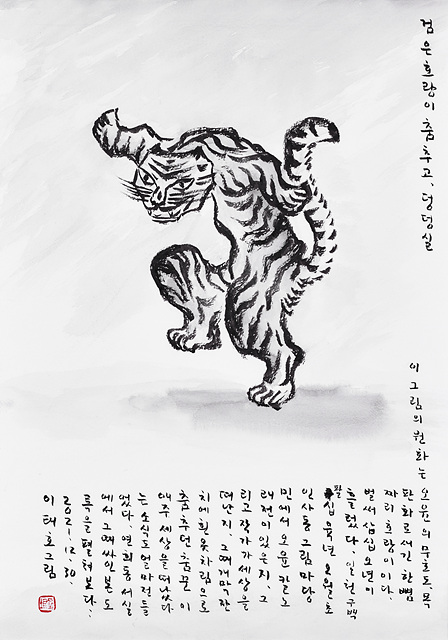 검은호랑이 춤추고, 덩덩실
이 그림의 원화는 오윤의 무호도 목
판화로 새긴 한 뼘
짜리 호랑이이다.
벌써 삼십오년이
흘렀다. 일천구백
팔십육년 오월 초
인사동 그림마당
민에서 오윤 칼노
래전이 있은지, 그
리고 작가가 세상을
떠난지. 그때 개막잔
치에 흰옷차림으로
춤추던 춤꾼 이
애주 세상을 떠났다
는 소식도 얼마전 들
었다. 연희동 서실
에서 그때 싸인본 도
록을 펼쳐 본다.
2021.12.30.
이태호 그림